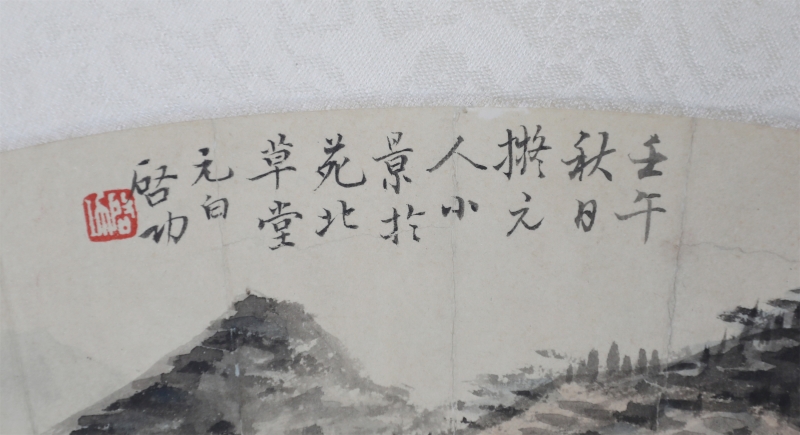 壬午
秋日
擬元
人小
景於
苑北
草堂
元白
啓功